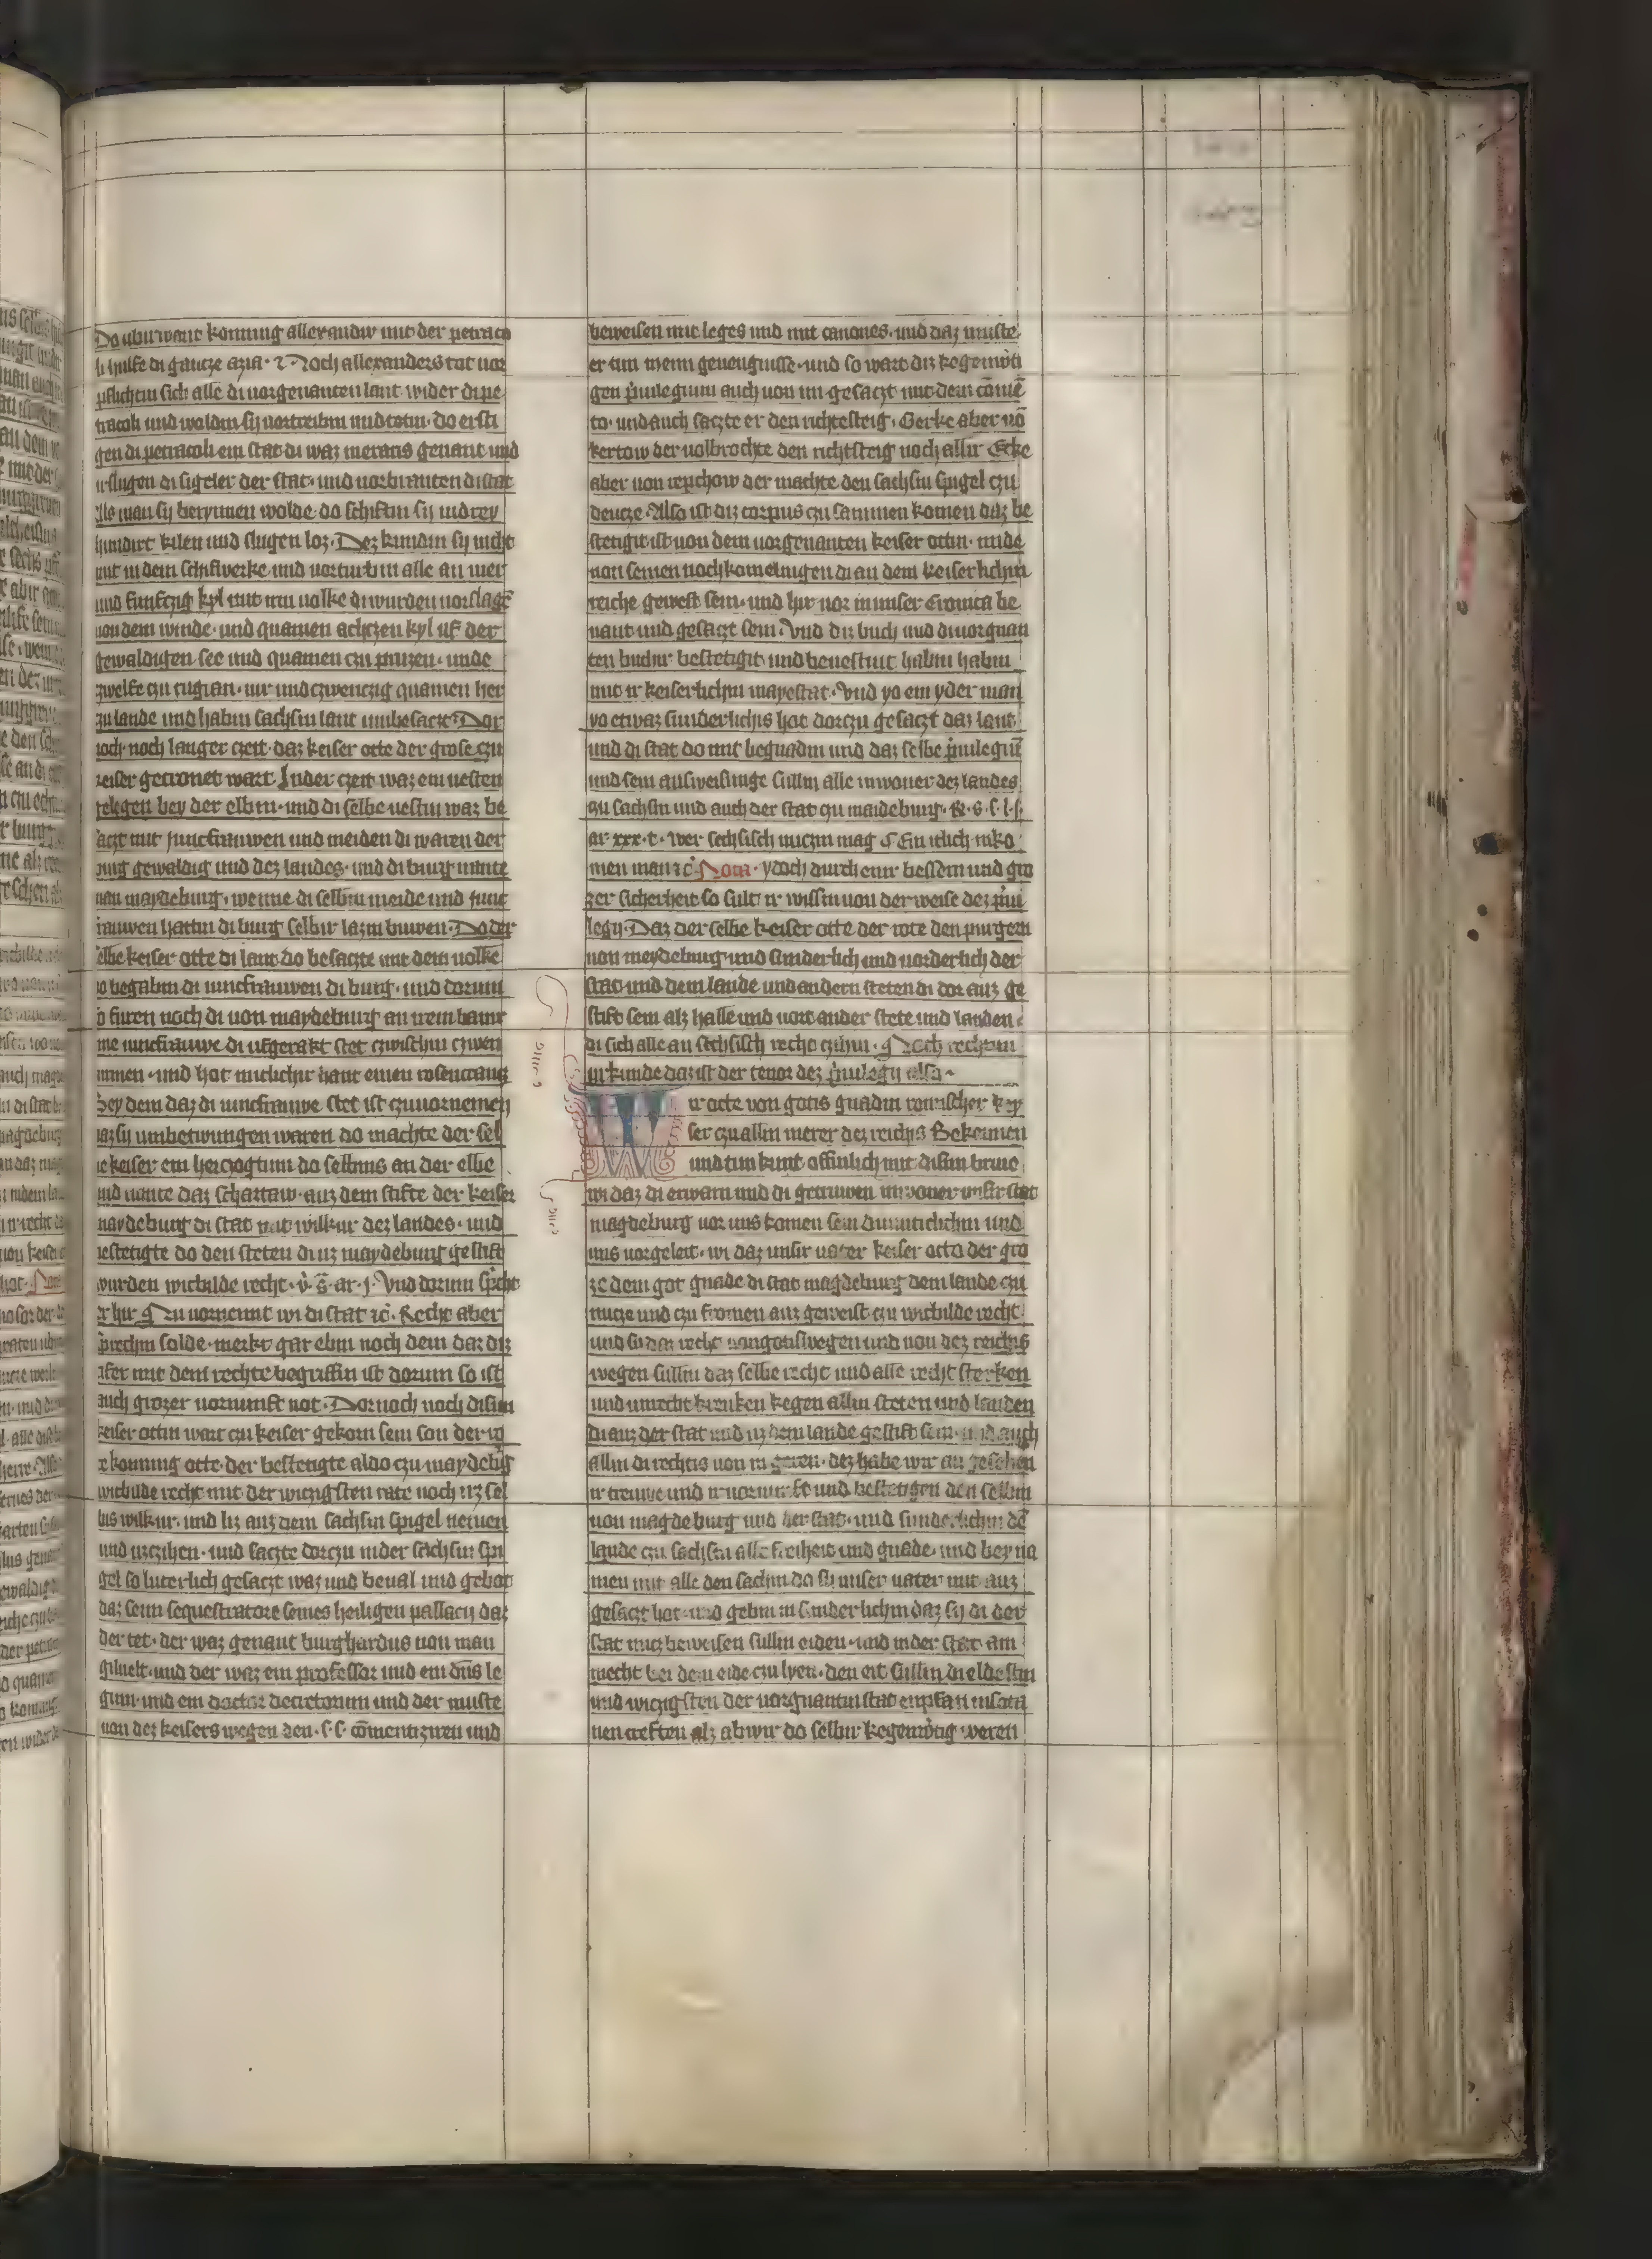 Do ubirwant konning allexander mit der petraco
li hulfe di gantze azia · Noch allexanders tot vor
pflichtin sich alle di vorgenanten lant wider di pe
tracoli und woldin sy vortreibin und totin · do ersti
gen di petracoli ein stat di waz merans genant und
irslugen di sigeler der stat · und vorbranten di stat
Als man sy berymen wolde do schiftin sy in drey
hundirt kilen und slugen loz · Dez kundin sy nicht
mit in dem schifwerke und vorturbin alle an vier
und funfczig kyl mit irm volke di wurden vorslagē
von dem winde · und quamen achczen kyl uf der
gewaldigen see und quamen czu pruzen · unde
zwelfe czu rugian · vir und czwenczig quamen her
zu lande und habin sachsin lant umbesaczt Dor
noch noch langer czeit daz keiser otte der grose czu
keiser gecronet wart In der czeit waz ein vesten
gelegen bey der elbin · und di selbe vestin waz be
saczt mit juncfrauwen und meiden di waren der
burg gewaldig und dez landes · und di burg nante
man maydeburg · wenne di selbin meide und junc
frauwen hattin di burg selbir lazin buwen · Do der
selbe keiser otte di lant do besaczte mit dem volke
do begabin di juncfrauwen di burg · und dorum
so furen noch di von maydeburg an irem banir
eine juncfrauwe di ufgerakt stet czwischin czwen
ummen · und hot in iclichir hant einen rosencrancz
Bey dem daz di juncfrauwe stet ist czuvornemen
daz sy umbetwungen waren do machte der sel
be keiser ein herczogtum do selbins an der elbe
und nante daz schartaw · auz dem stifte der keiser
maydeburg di stat mit wilkur dez landes · und
bestetigte do den steten di uz maydeburg gestift
wurden wicbilde recht · v̓ · s̄ · ar · j · Vnd dorum sp̓cht
er hir Nu vornemt wi di stat ꝛc̄ · Recht aber
sprechin solde · merkt gar ebin noch dem daz diz
after mit dem rechte begriffin ist dorum so ist
auch grozer vornunft not · Dornoch noch disim
keiser ottin wart czu keiser gekorn sein son der ro
te konning otte · der bestetigte aldo czu maydebůg
wicbilde recht mit der wiczigsten rate noch irz sel
bis wilkur · und liz auz dem sachsin spigel nemen
und uzczihen · und saczte dorczu in der sachsin spi
gel so luterlich gesaczt waz und beval und gebot
daz seim sequestratore seines heiligen pallacij daz
der tet · der waz genant burghardus von man
gilvelt · und der waz ein professor und ein dn̄s le
gum · und ein doctor decretorum und der muste
von dez keisers wegen den · s · s · cōmentiziren und
beweisen mit leges und mit canones · und daz muste
er tun mein geneugnisse · und so wart diz kegenworti
gen p̓uilegium auch von im gesaczt mit dem cōmē
to · und auch saczte er den richtesteig · Gerke aber vō
kertow der volbrochte den richtsteig noch allir Ecke
aber von repchow der machte den sachsin spigel czu
deucze · Also ist diz corpus czu sammen komen daz be
stetigit ist von dem vorgenanten keiser ottin · unde
von seinen nochkomelingen di an dem keiserlichin
reiche gewest sein · und hir vor in unser Cronica be
nant und gesaczt sein · Vnd diz buch und di vorgnan
ten budir bestetigit · und bevestint habin habin
mit ir keiserlichin mayestat · Vnd yo ein yder man
yo etwaz sunderlichis hot dorczu gesaczt daz lant
und di stat do mit begnadin und daz selbe p̓uilegiū
und sein ausweisunge sullin alle inwoner dez landes
zu sachsin und auch der stat zu maideburg · R · s · s · l · j ·
ar · xxx · t · wer sechsisch nuczin mag Ein iclich inko
men man ꝛc̄ Nota · ydoch durch eur bessern und gro
zer sicherheit so sult ir wissin von der weise dez p̓ui
legij · Daz der selbe keiser otte der rote den purgern
von meydeburg und sunderlich und vorderlich der
stat und dem lande und andern steten di dor auz ge
stift sein alz halle und vort ander stete und landen ·
di sich alle an sechsisch recht czihin · Noch rechtim
urkunde daz ist der tenor dez p̓uilegij also
Wir otte von gotis gnadin romischer key
ser czu allin merer dez reichis Bekennen
und tun kunt offinlich mit disim brive
wi daz di erwarn und di getruwen inwoner unsir stat
magdeburg vor uns komen sein dimuticlichin und
uns vorgeleit · wi daz unsir vater keiser otto der gro
ze dem got gnade di stat magdeburg dem lande czu
nucze und czu fromen auz geweist czu wicbilde recht
und sinder recht von gotis wegen und von dez reichis
wegen sullin daz selbe recht und alle recht sterken
und unrecht krenken kegen allin steten und landen
di auz der stat und uz dem lande gestift sein · und auch
allin di rechtis von in geren · dez habe wir an gesehen
ir treuwe und ir vornunft und bestetigen den selbin
von magdeburg und der stat · und sunderlichin dē
lande czu sachsin alle freiheit und gnade · und bey na
men mit alle den sachin do sy unser vater mit auz
gesaczt hot · und gebin in sunderlichin daz sy di der
stat nucz beweisen sullin eiden · und in der stat am
mecht bei dem eide czu lyen · den eit sullin di eldestin
und wiczigsten der vorgnantin stat enpfan in sota
nen creften alz ab wir do selbir kegenwortig weren